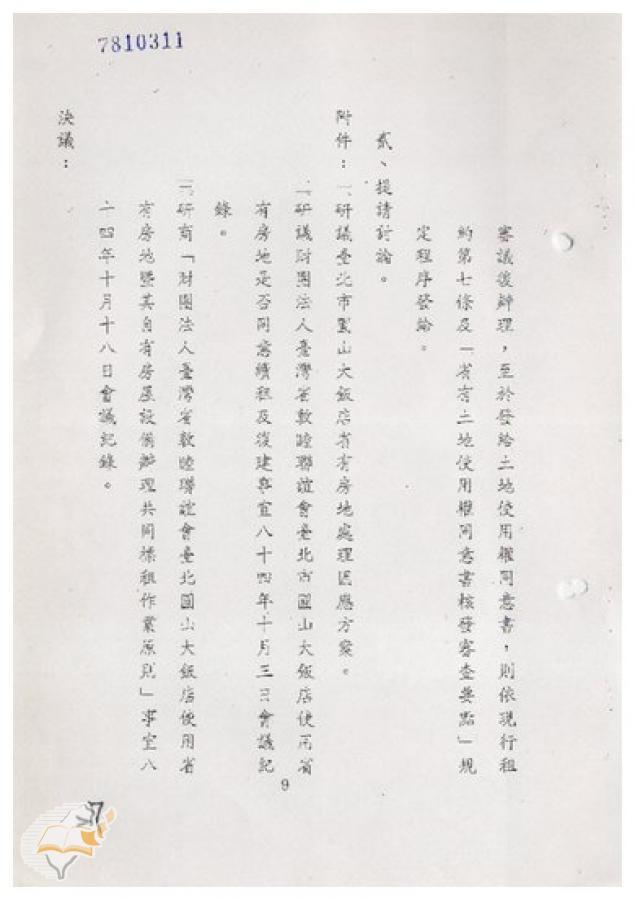 7810311
審議後辦理，至於發給土地使用權同意書，則依現行租
約第七條及「省有土地使用權同意書核發審查要點」規
定程序發給。
貳、提請討論。
附件：一、研議臺北市圓山大飯店省有房地處理因應方案。
二、研議財團法人臺灣省敦睦聯誼會臺北市圓山大飯店使用省
有房地是否同意續租及復建事宜八十四年十月三日會議紀
錄。
三、研商「財團法人臺灣省敦睦聯誼會臺北圓山大飯店使用省
有房地暨其自有房屋設備辦理共同標租作業原則」事宜八
十四年十月十八日會議紀錄。
決議：
9